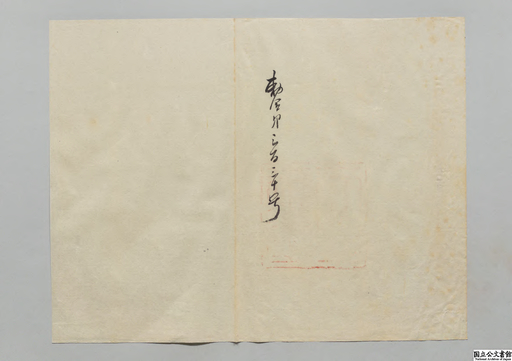 勅令第三百三十号
国立公文書館
National Archives of Japan